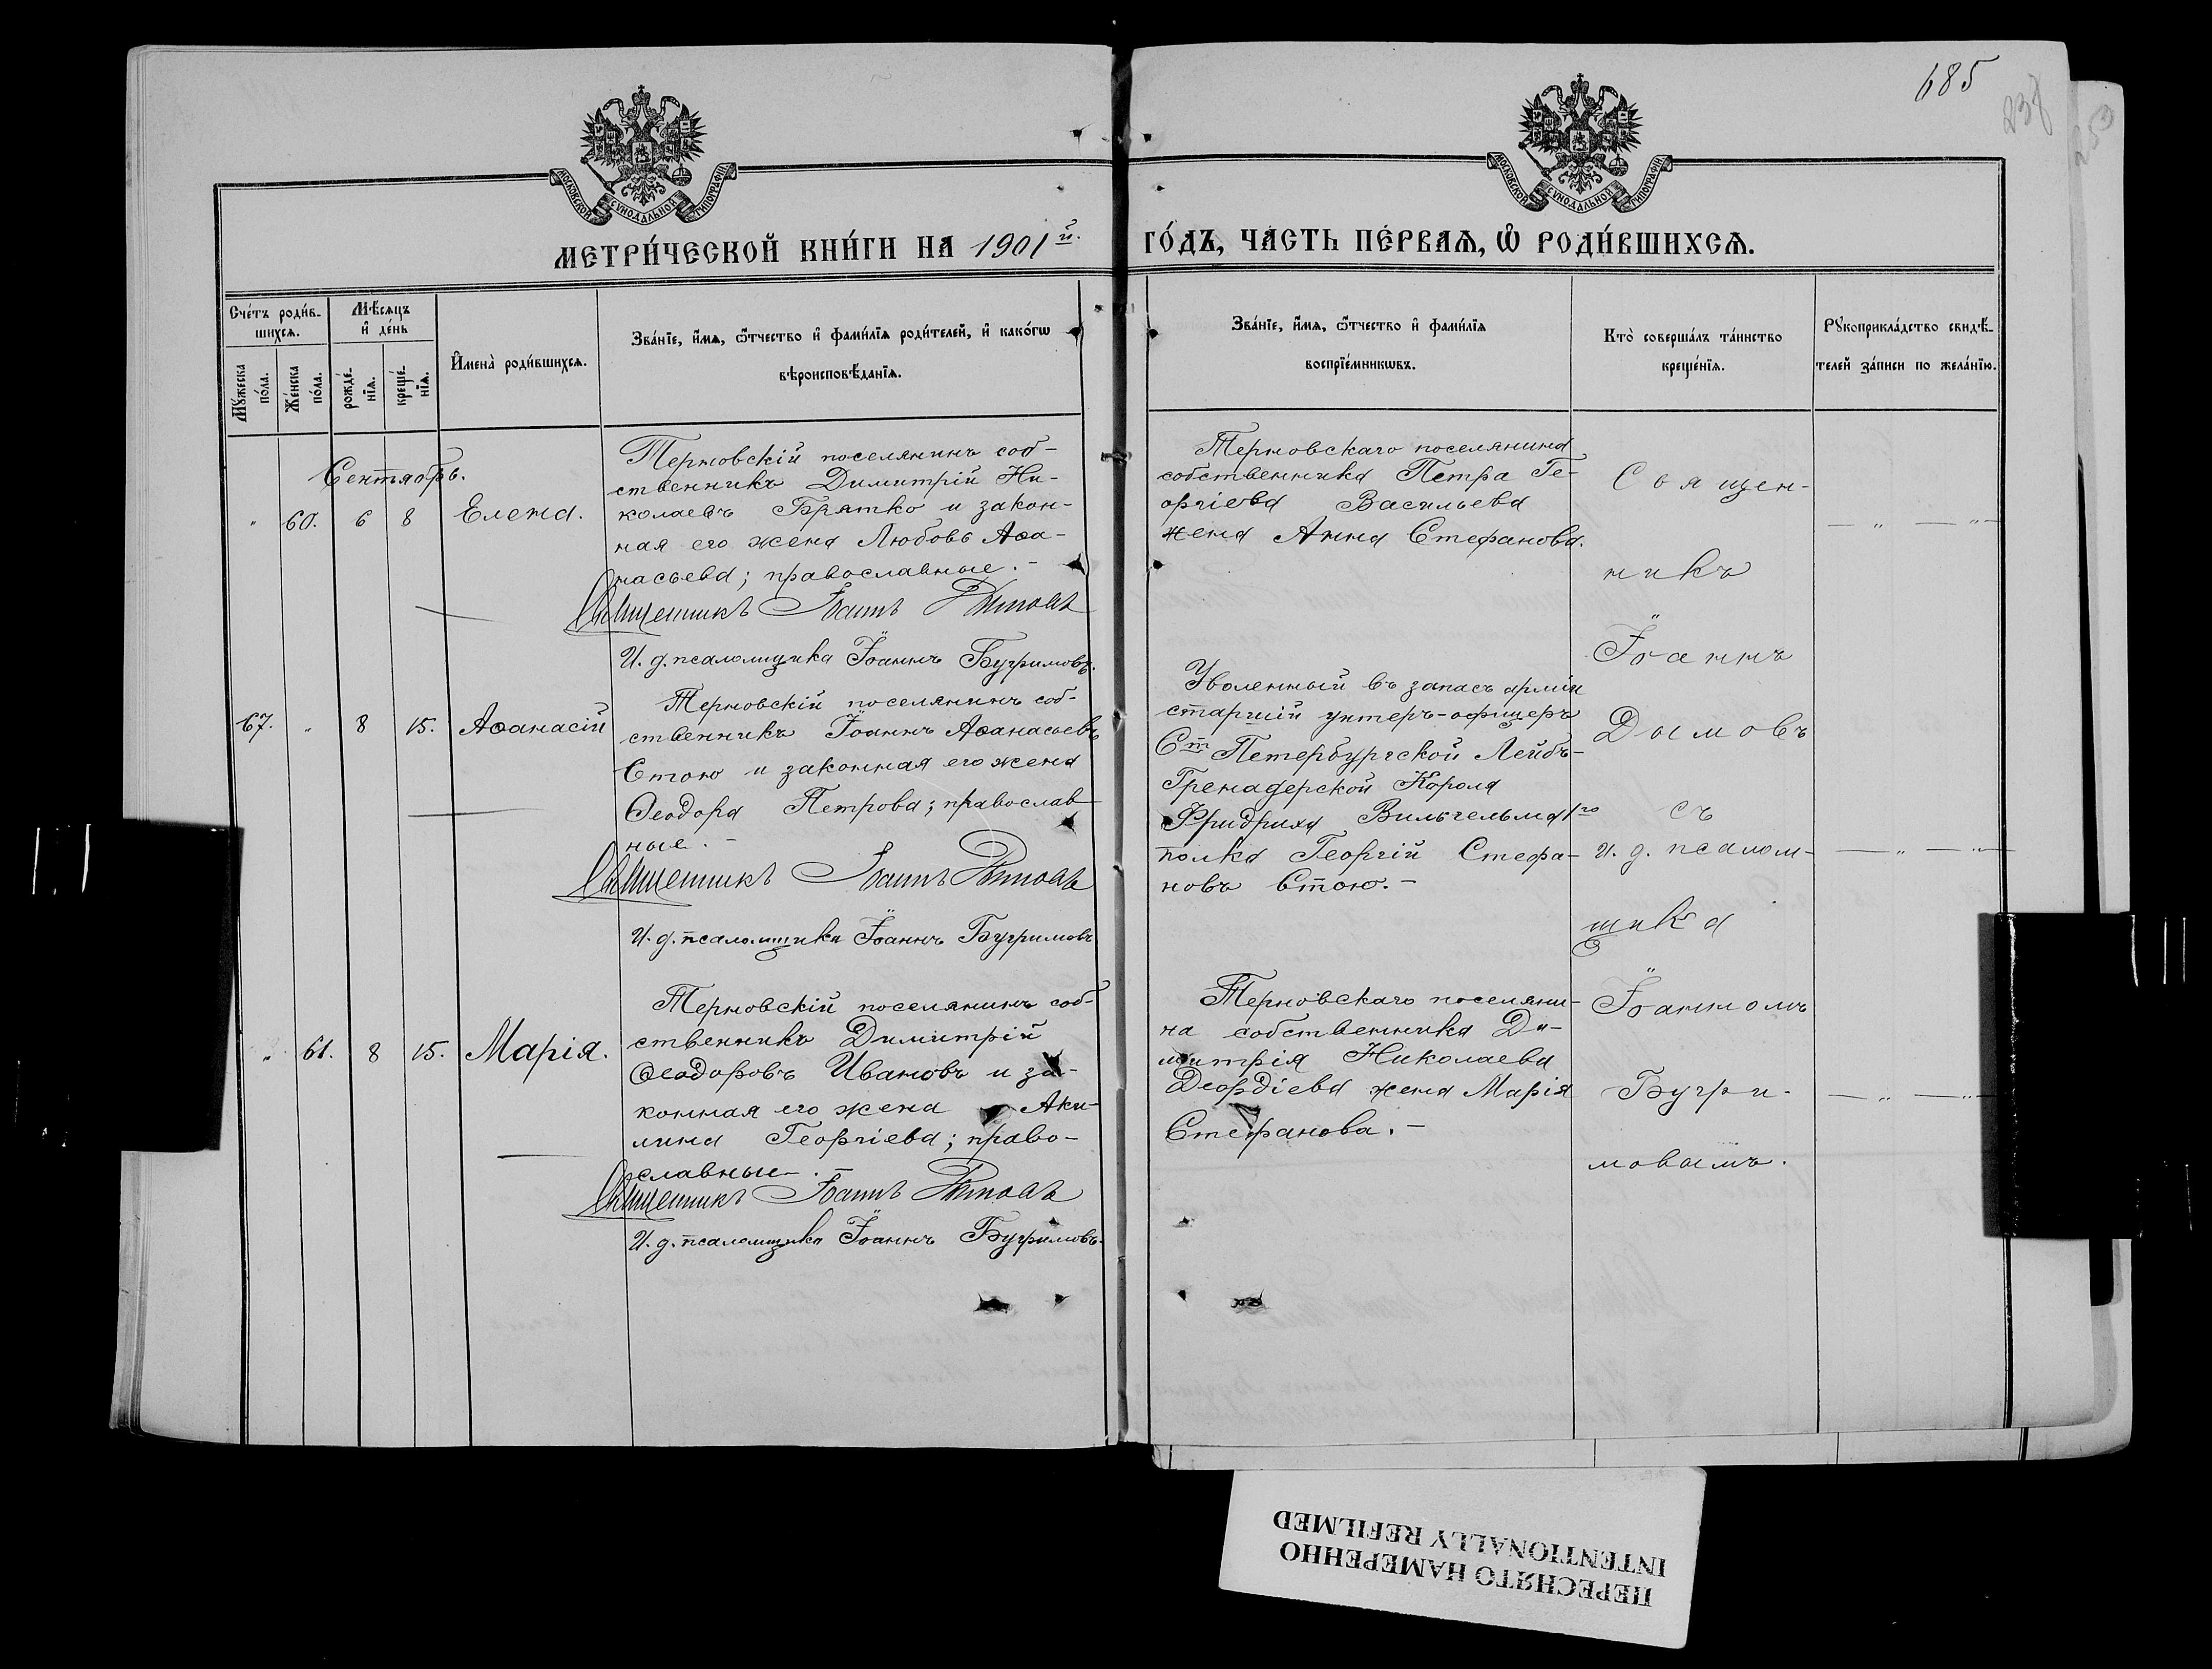 685
238
253
МОСКОВСКОЙ СѴНОДАЛЬНОЙ ТИПОГРАФІИ
МОСКОВСКОЙ СѴНОДАЛЬНОЙ ТИПОГРАФІИ
МЕТРИ́ЧЕСКОЙ КНИ́ГИ НА 1901й.
ГО́ДЪ, ЧА́СТЬ ПЕ́РВАѦ, Ѽ РОДИ́ВШИХСѦ.
Сче́тъ роди́в-
шихсѧ.
Мꙋ́жеска по́ла.
Же́нска по́ла.
Мѣ́сѧцъ
и҆ де́нь
рожде́-
нїѧ.
креще́-
нїѧ.
И҆мена̀ роди́вшихсѧ.
Зва́нїе, и҆́мѧ, ѻ҆́тчество и҆ фами́лїѧ роди́телей, и҆ како́гѡ
вѣроисповѣ́данїѧ.
Зва́нїе, и҆́мѧ, ѻ҆́тчество и҆ фами́лїѧ
воспрїе́мникѡвъ.
Кто̀ соверша́лъ та́инство
креще́нїѧ.
Рꙋкоприкла́дство свидѣ́-
телей за́писи по жела́нїю.
Сентябрь.
" 60. 6 8 Елена.
Терновскій поселянинъ соб-
ственникъ Димитрій Ни-
колаевъ Братко и закон-
ная его жена Любовь Аѳа-
насьева; православные. -
Священникъ Іоаннъ Дымовъ
И. д. псаломщика Іоаннъ Бугримовъ.
Терновскаго поселянина
собственника Петра Ге-
оргіева Васильева
жена Анна Стефанова.
67. " 8 15. Аѳанасій
Терновскій поселянинъ соб-
ственникъ Іоаннъ Аѳанасьевъ
Стою и законная его жена
Ѳеодора Петрова; православ-
ные. -
Священникъ Іоаннъ Дымовъ
И. д. псаломщика Іоаннъ Бугримовъ
Уволенный въ запасъ арміи
старшій унтеръ-офицеръ
Ст Петербургской Лейбъ-
Гренадерской Короля
Фридриха Вильгельма 1го
полка Георгій Стефа-
новъ Стою. -
" 61. 8 15. Марія.
Терновскій поселянинъ соб-
ственникъ Димитрій
Ѳеодоровъ Ивановъ и за-
конная его жена Аки-
лина Георгіева; право-
славные. -
Священникъ Іоаннъ Дымовъ
И. д. псаломщика Іоаннъ Бугримовъ.
Терновскаго поселяни-
на собственника Ди-
митрія Николаева
Деордіева жена Марія
Стефанова. -
Священ-
никъ
Іоаннъ
Дымовъ
съ
и. д. псалом-
щика
Іоанномъ
Бугри-
мовымъ.
— " — " —
— " — " —
— " — " —
ПЕРЕСНЯТО НАМЕРЕННО
INTENTIONALLY REFILMED